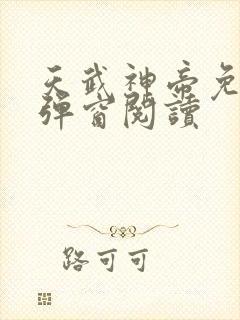 天武神帝免
彈窗閱讀
路可可